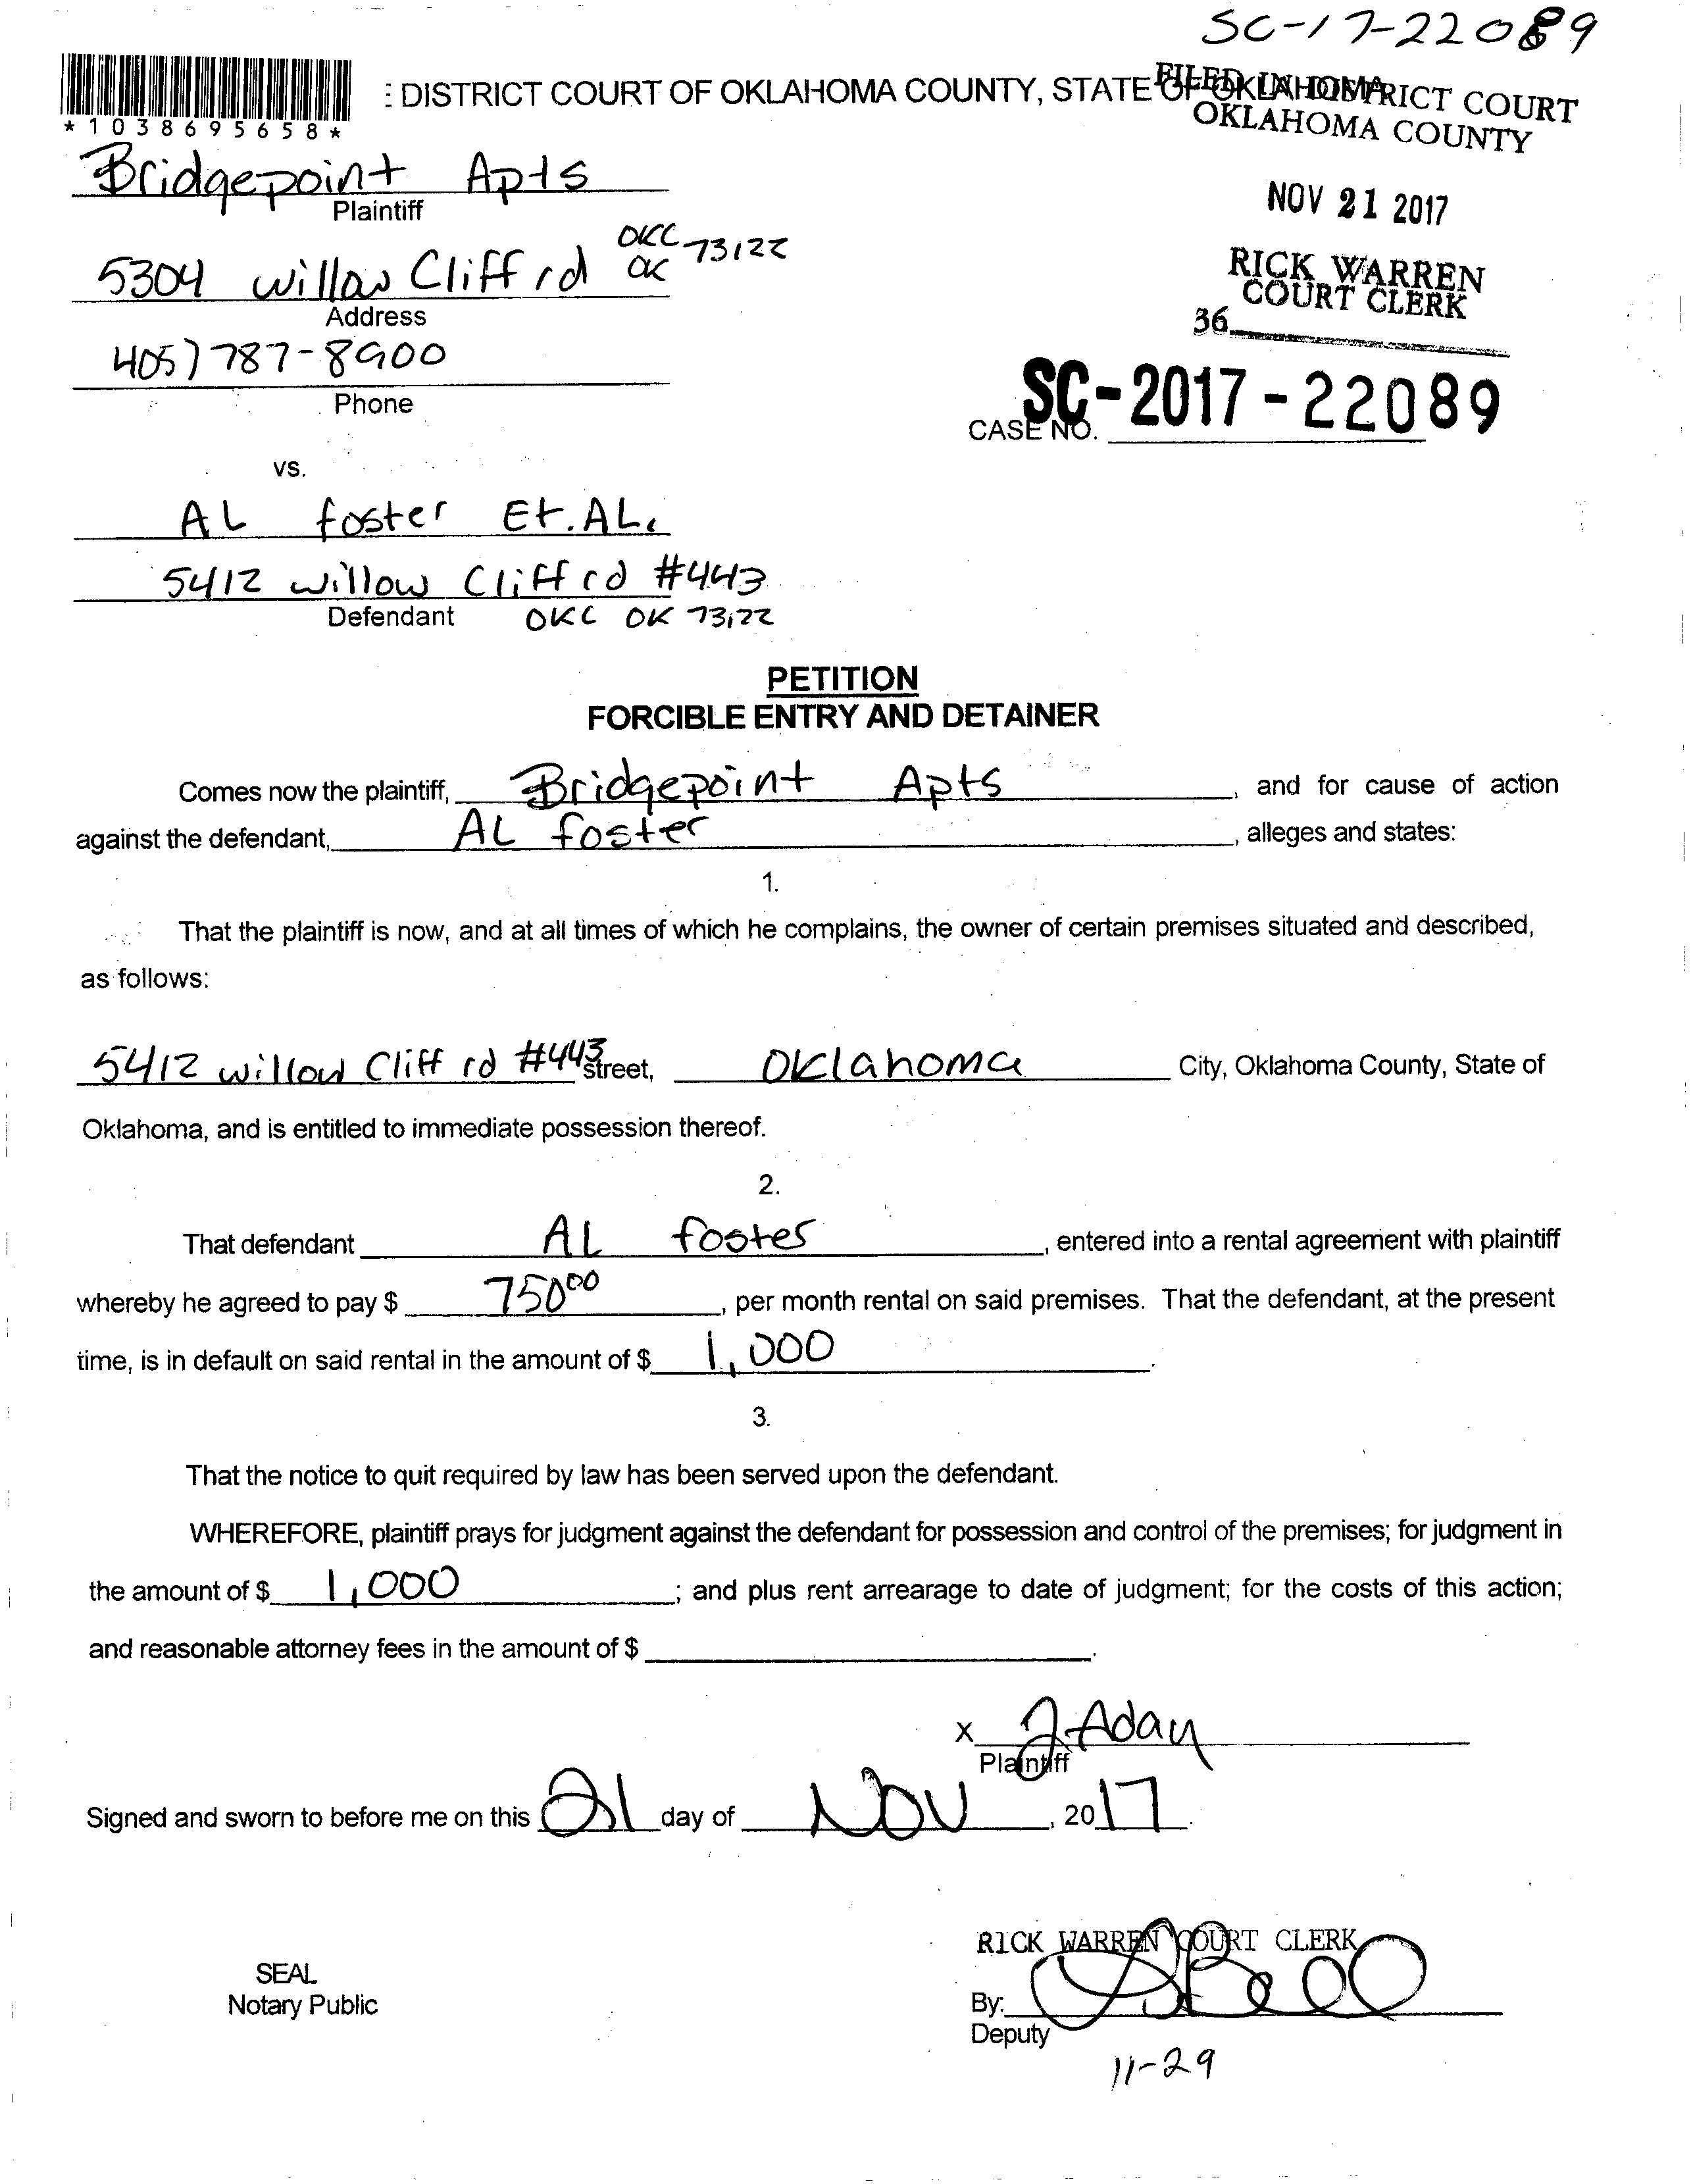 SC-17-22089
: DISTRICT COURT OF OKLAHOMA COUNTY, STATE OF OKLAHOMA
FILED IN DISTRICT COURT
OKLAHOMA COUNTY
*1038695658*
Bridgepoint Apts
Plaintiff
NOV 21 2017
5304 willow Cliff rd OKC OK 73122
Address
RICK WARREN
COURT CLERK
36
405) 787-8900
Phone
SC-2017-22089
CASE NO.
vs.
AL foster Et. AL.
5412 willow Cliff rd #443
Defendant OKC OK 73122
PETITION
FORCIBLE ENTRY AND DETAINER
Comes now the plaintiff, Bridgepoint Apts, and for cause of action
against the defendant, AL foster, alleges and states:
1.
That the plaintiff is now, and at all times of which he complains, the owner of certain premises situated and described,
as follows:
5412 willow Cliff rd #443 street, Oklahoma City, Oklahoma County, State of
Oklahoma, and is entitled to immediate possession thereof.
2.
That defendant AL foster, entered into a rental agreement with plaintiff
whereby he agreed to pay $ 750.00, per month rental on said premises. That the defendant, at the present
time, is in default on said rental in the amount of $ 1,000.
3.
That the notice to quit required by law has been served upon the defendant.
WHEREFORE, plaintiff prays for judgment against the defendant for possession and control of the premises; for judgment in
the amount of $ 1,000; and plus rent arrearage to date of judgment; for the costs of this action;
and reasonable attorney fees in the amount of $ .
X J Aday
Plaintiff
Signed and sworn to before me on this 21 day of Nov, 2017.
RICK WARREN COURT CLERK
SEAL
Notary Public
By:
Deputy
11-29